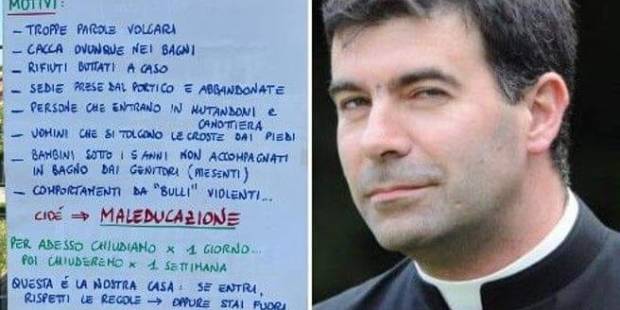 MOTIVI:
– TROPPE PAROLE VOLGARI
– CACCA OVUNQUE NEI BAGNI
– RIFIUTI BUTTATI A CASO
– SEDIE PRESE DAL PORTICO E ABBANDONATE
– PERSONE CHE ENTRANO IN MUTANDONI E
CANOTTIERA
– UOMINI CHE SI TOLGONO LE CROSTE DAI PIEDI
– BAMBINI SOTTO I 5 ANNI NON ACCOMPAGNATI
IN BAGNO DAI GENITORI (PRESENTI)
– COMPORTAMENTI DA "BULLI" VIOLENTI...
CIOÉ → MALEDUCAZIONE
PER ADESSO CHIUDIAMO × 1 GIORNO...
POI CHIUDEREMO × 1 SETTIMANA
QUESTA É LA NOSTRA CASA: SE ENTRI,
RISPETTI LE REGOLE → OPPURE STAI FUORI